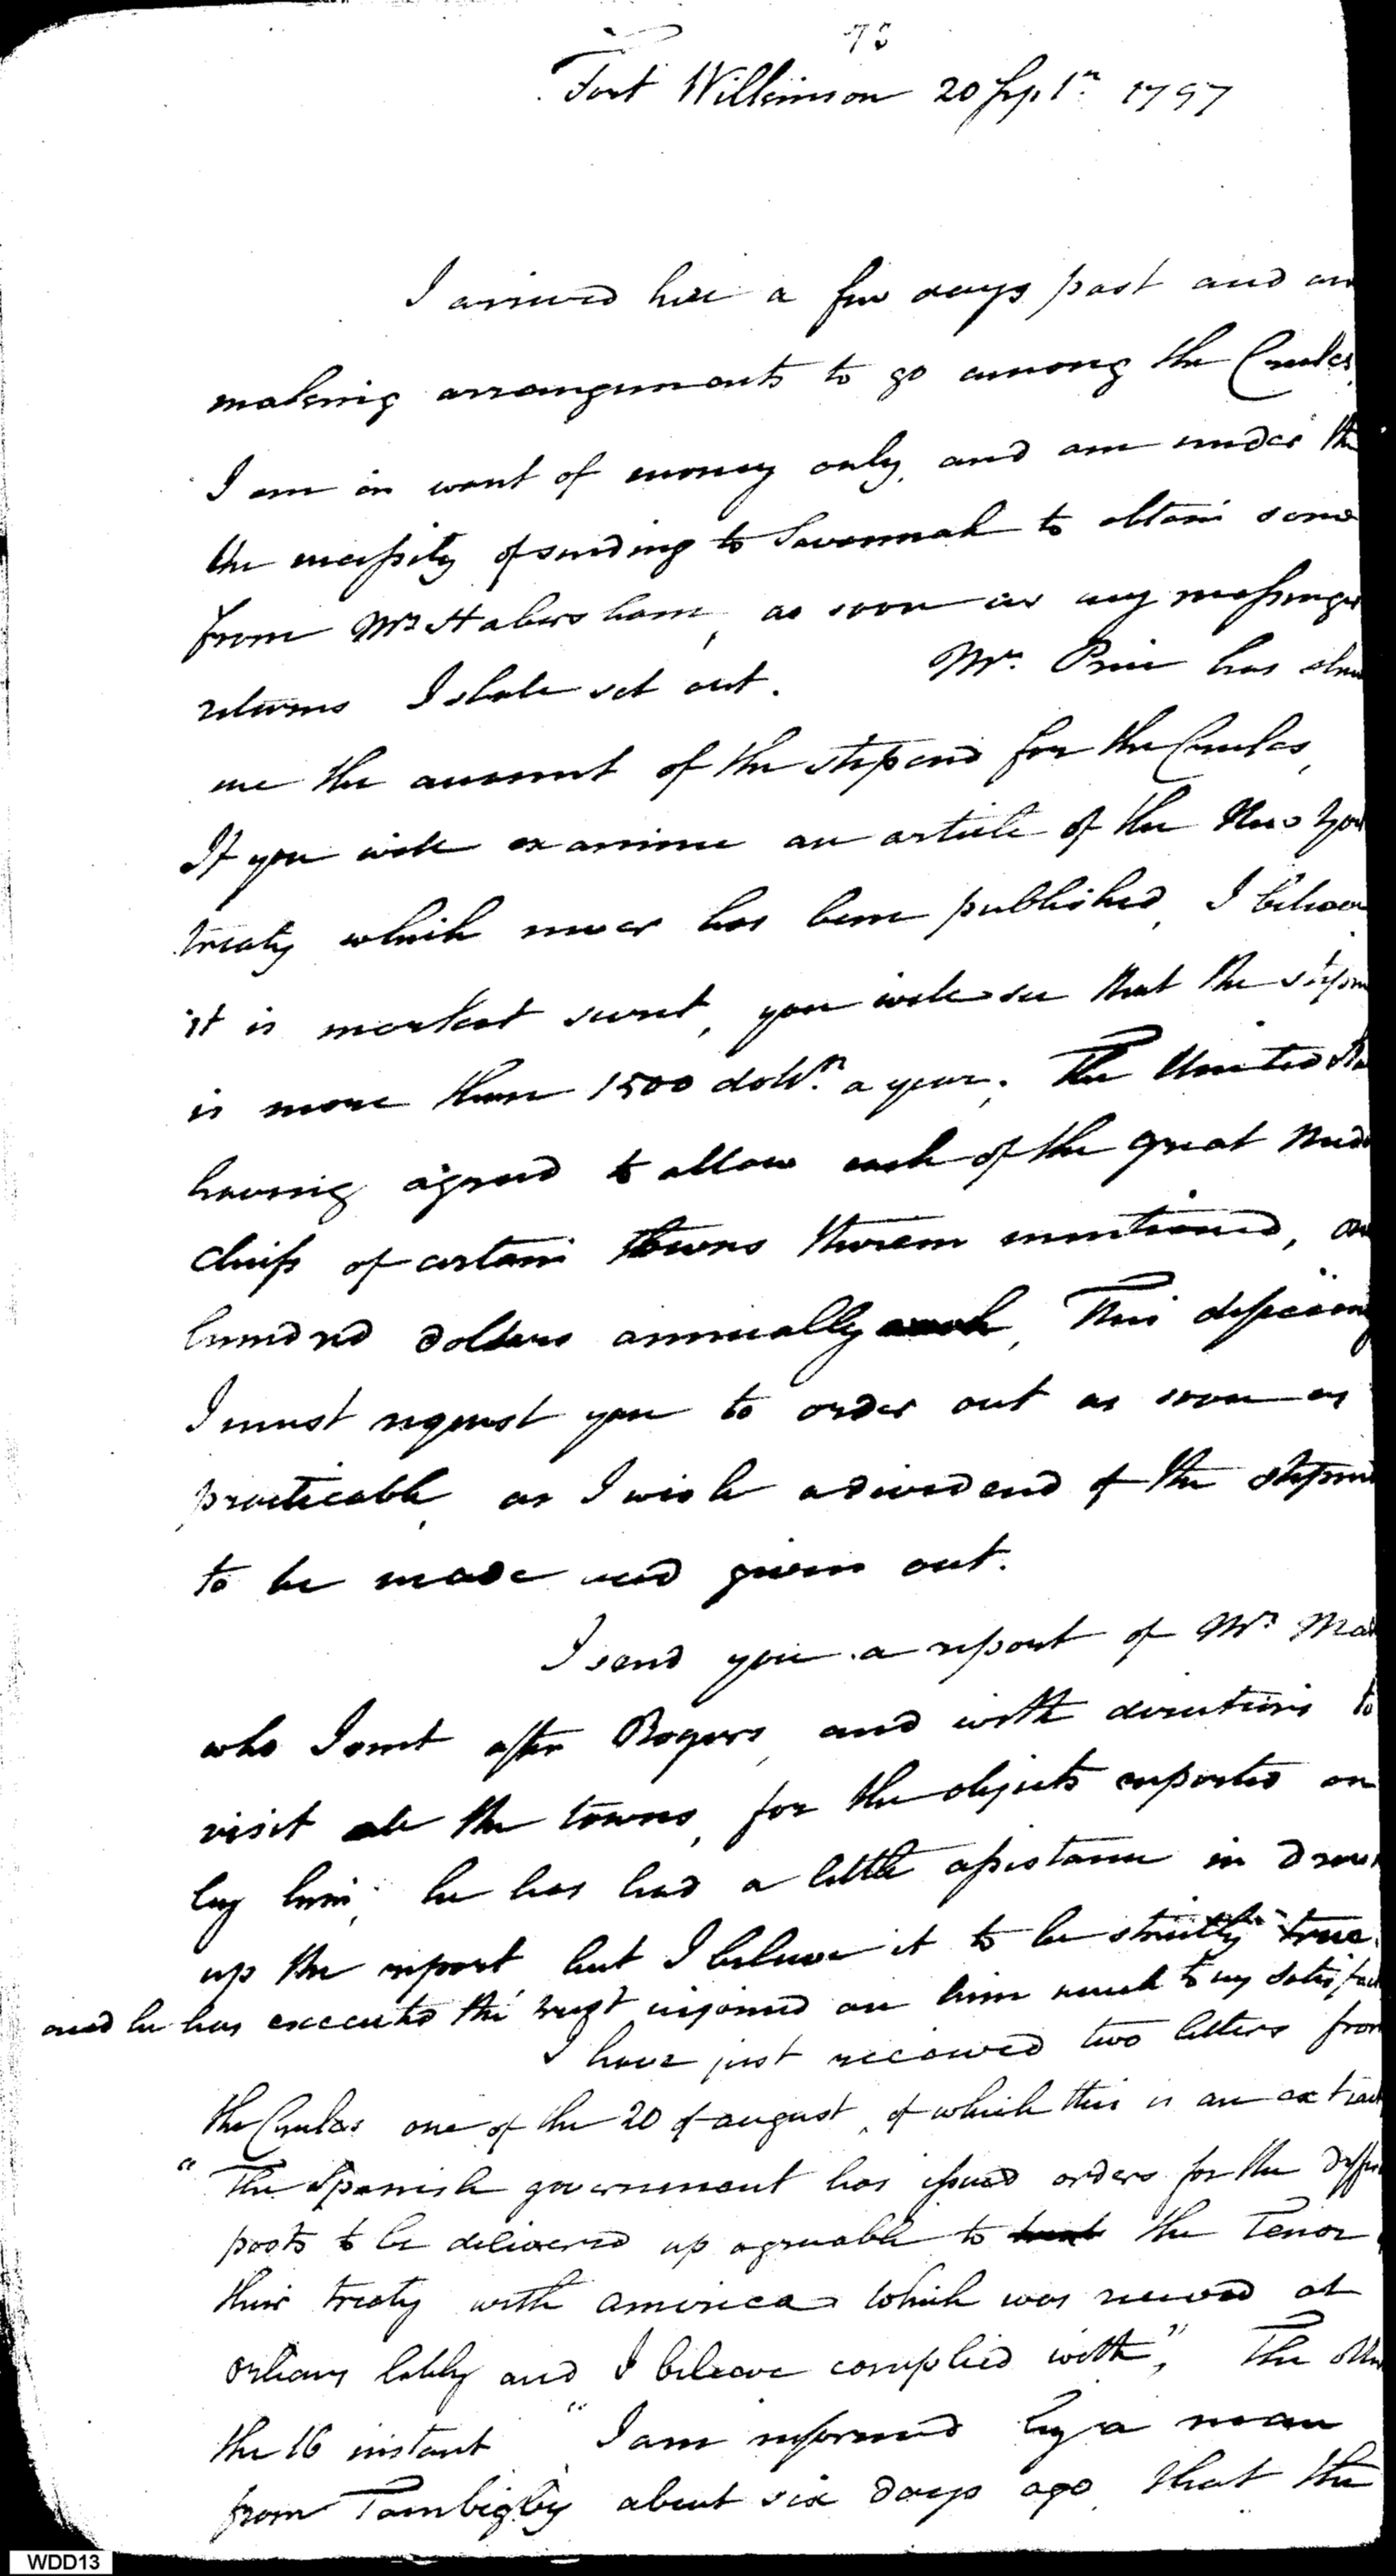 73
Fort Wilkinson 20 Sepr. 1797
I arrived here a few days past and am
making arrangements to go among the Creeks,
I am in want of money only, and am under the
the necessity of sending to Savannah to obtain some
from Mr. Habersham, as soon as my messenger
returns I shall set out. Mr. Price has
me the amount of the stipend for the Creeks,
If you will examine an article of the New York
treaty which never has been published, I believe
it is marked secret, you will see that the
is more than 1500 dolls. a year. The United
having agreed to allow each of the great
chiefs of certain towns therein mentioned, one
hundred dollars annually, This
I must request you to order out as soon as
practicable, as I wish a dividend of the
to be made and given out.
I send you a report of Mr.
who I sent after Rogers, and with directions to
visit all the towns, for the objects reported on
by him, he has had a little assistance in
up the report but I believe it to be strictly true.
and he has executed the trust injoined on him much to my
I have just received two letters from
the Creeks one of the 20 of august, of which this is an extract
"The Spanish government has issued orders for the
posts to be delivered up agreeable to the Tenor
their treaty with america which was received at
orleans lately and I beleave complied with", The
the 16 instant "I am informed by a man
from Tombigby about six days ago, that the
WDD13